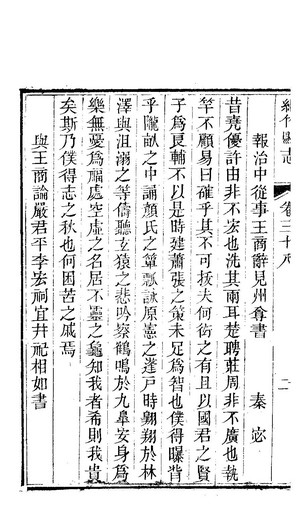 綿竹縣志 卷三十八 二
報治中從事王商辭見州尊書 秦宓
昔堯優許由非不宏也洗其兩耳楚聘莊周非不廣也執
竿不顧易曰確乎其不可拔夫何衒之有且以國君之賢
子為良輔不以是時建蕭張之策未足為智也僕得曝背
乎隴畝之中誦顏氏之簞瓢詠原憲之蓬戶時翺翔於林
澤與沮溺之等儔聽玄猿之悲吟察鶴鳴於九臯安身為
樂無憂為福處空虛之名居不靈之龜知我者希則我貴
矣斯乃僕得志之秋也何困苦之戚焉
與王商論嚴君平李宏祠宜并祀相如書